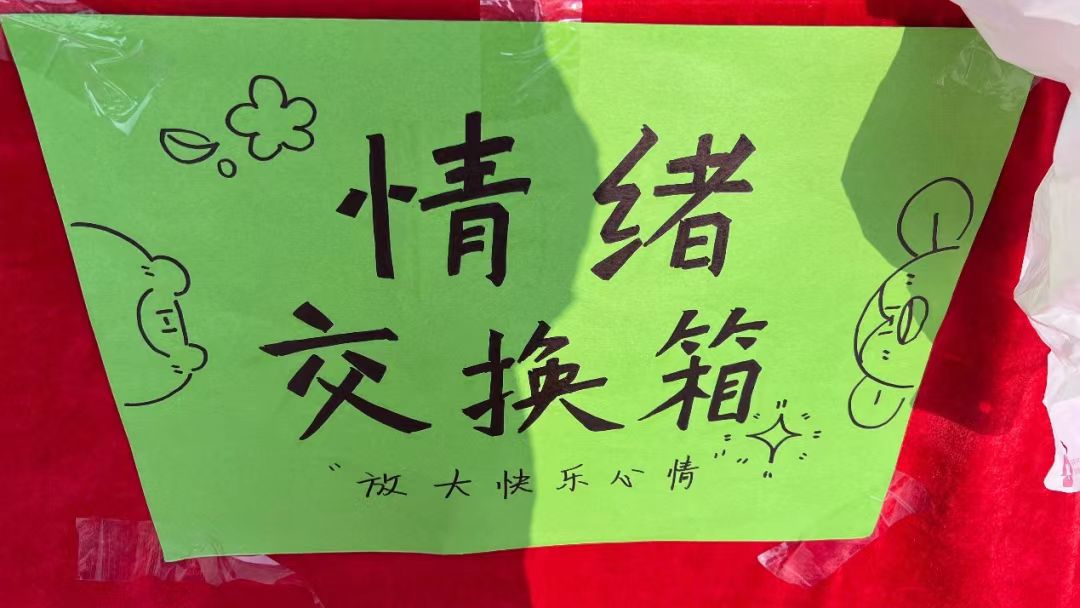 情绪
交换箱
“放大快乐心情”